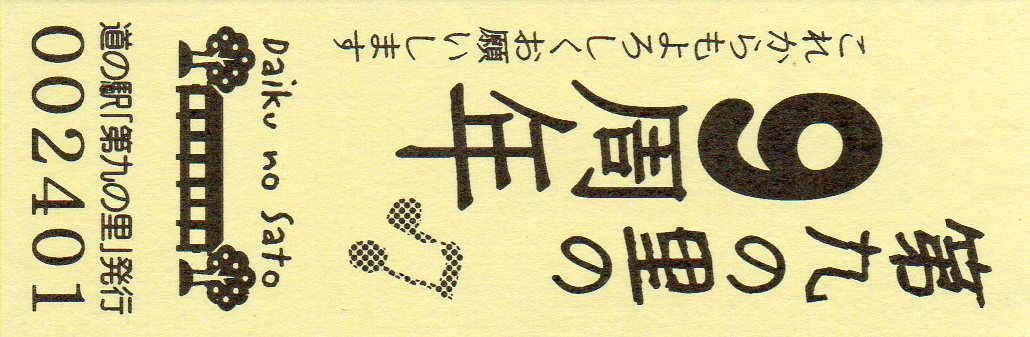 第九の里の
9周年
これからもよろしくお願いします
Daiku no Sato
道の駅「第九の里」発行
002401